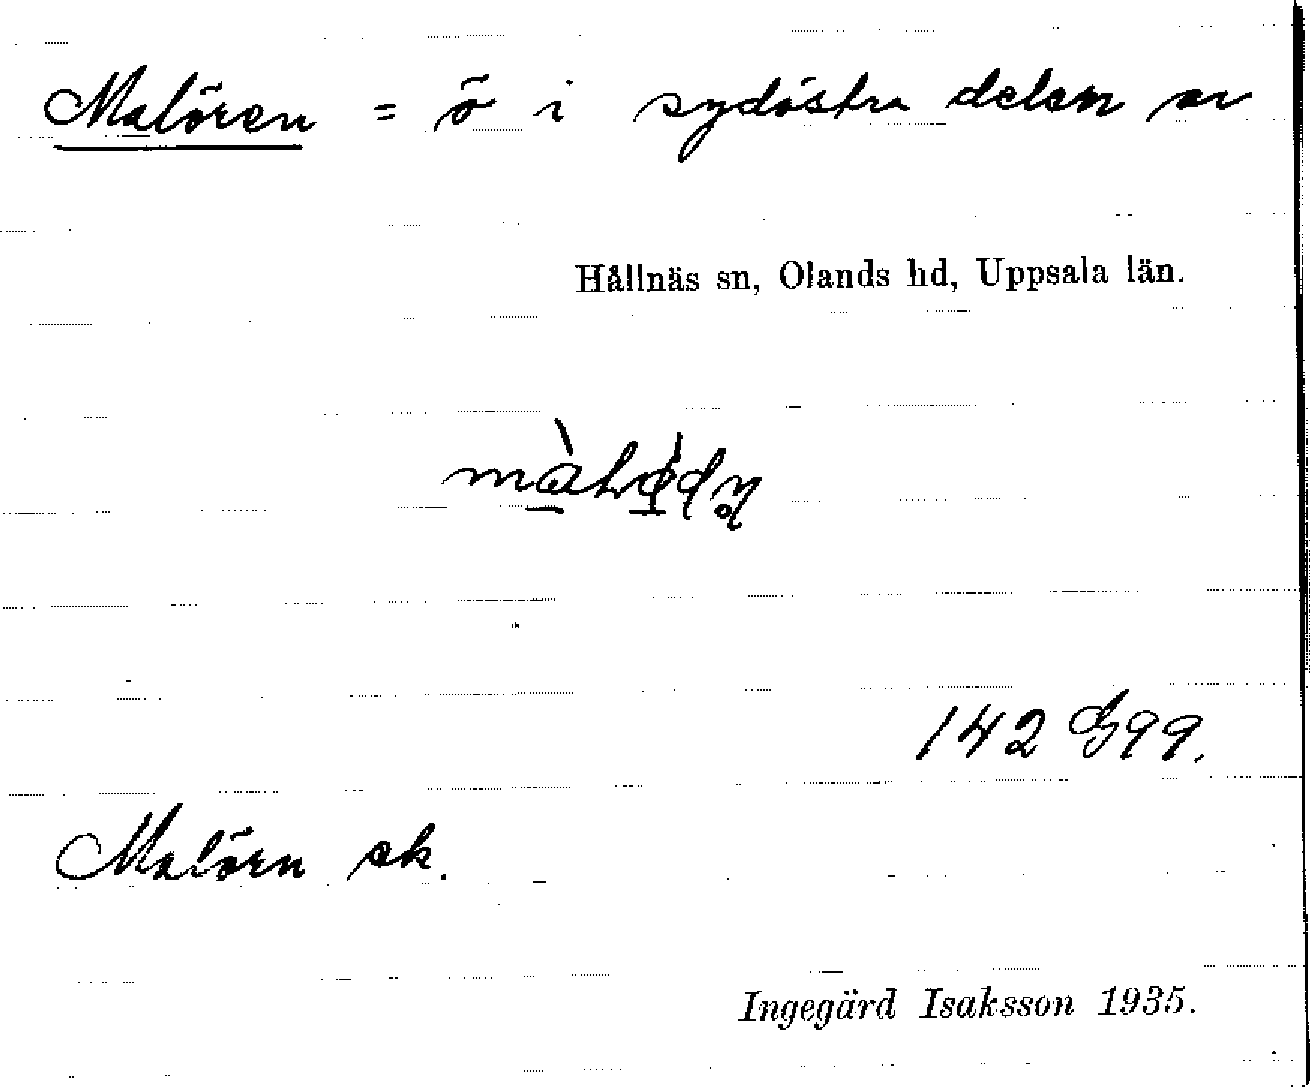 Malören = ö i sydöstra delen av
Hållnäs sn, Olands hd, Uppsala län.
142 G 99.
Malörn ek.
Ingegärd Isaksson 1935.